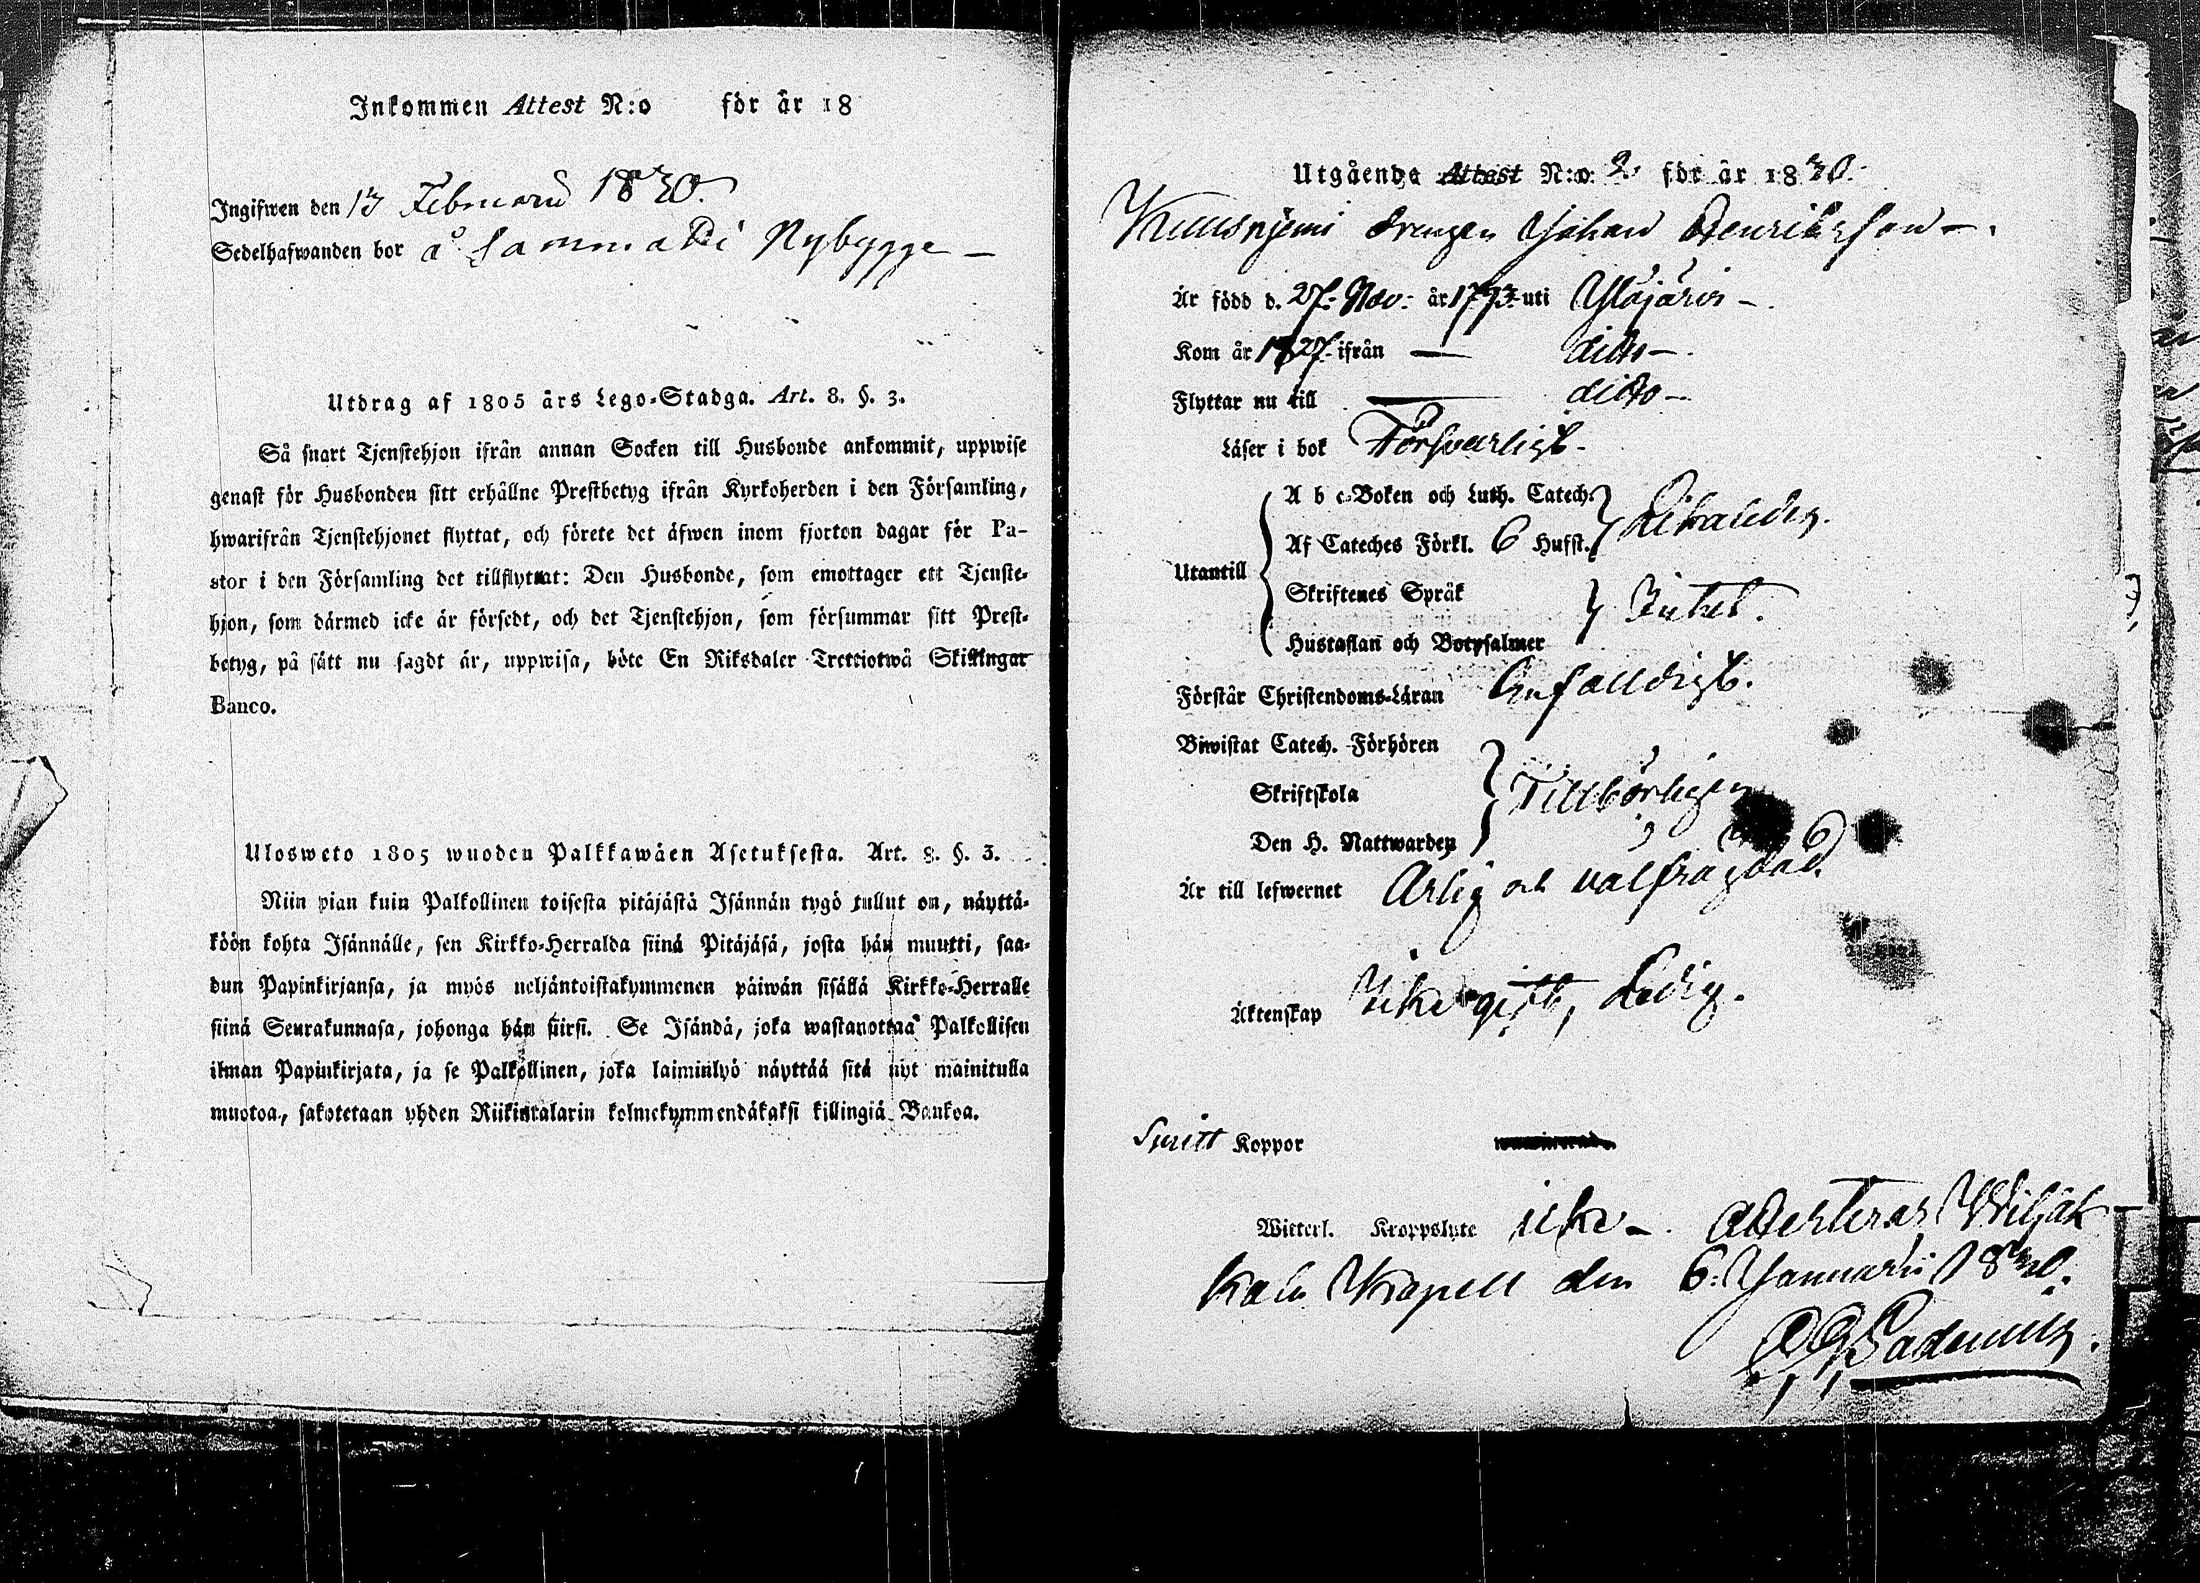 Inkommen Attest N:o för år 18
Ingifwen den 13 Februarii 1830.
Sedelhafwanden bor å Lammaldi Nybygge –
Utdrag af 1805 års Lego-Stadga. Art. 8. §. 3.
Så snart Tjenstehjon ifrån annan Socken till Husbonde ankommit, uppwise
genast för Husbonden sitt erhållne Prestbetyg ifrån Kyrkoherden i den Församling,
hwarifrån Tjenstehjonet flyttat, och förete det äfwen inom fjorton dagar för Pa-
stor i den Församling det tillflyttat: Den Husbonde, som emottager ett Tjenste-
hjon, som därmed icke är försedt, och det Tjenstehjon, som försummar sitt Prest-
betyg, på sätt nu sagdt är, uppwisa, böte En Riksdaler Trettiotwå Skillingar
Banco.
Ulosweto 1805 wuoden Palkkawäen Asetuksesta. Art. 8. §. 3.
Niin pian kuin Palkollinen toisesta pitäjästä Isännän tygö tullut on, näyttä-
köön kohta Isännälle, sen Kirkko-Herralda siinä Pitäjäsä, josta hän muutti, saa-
dun Papinkirjansa, ja myös neljäntoistakymmenen päiwän sisällä Kirkko-Herralle
siinä Seurakunnasa, johonga hän siirsi. Se Isändä, joka wastanottaa Palkollisen
ilman Papinkirjata, ja se Palkollinen, joka laiminlyö näyttää sitä nyt mainitulla
muotoa, sakotetaan yhden Riikintalarin kolmekymmendäkaksi killingiä Bankoa.
Utgående Attest N:o 2. för år 1830.
Kuusnjemi drengen Johan Henriksson –.
Är född d. 27. Nov. år 1793. uti Ylöjärvi –.
Kom år 1827. ifrån — ditto –.
Flyttar nu till — ditto –
Läser i bok Försvarligt.
A b c-Boken och Luth. Catech.
Af Cateches Förkl. 6 Hufst.
Utantill
Skriftenes Språk
Intet.
Hustaflan och Botpsalmer
Förstår Christendoms-Läran Enfaldigt.
Biwistat Catech. Förhören
Skriftskola
Tillbörligen
Den H. Nattwarden
Är till lefwernet Ärlig och välfrägdad.
Äktenskap Icke gift, Ledig.
Koppor
Witterl. Kroppslyte icke –. Attesterar Wiljak
kala Kapell den 6. Januarii 1830.